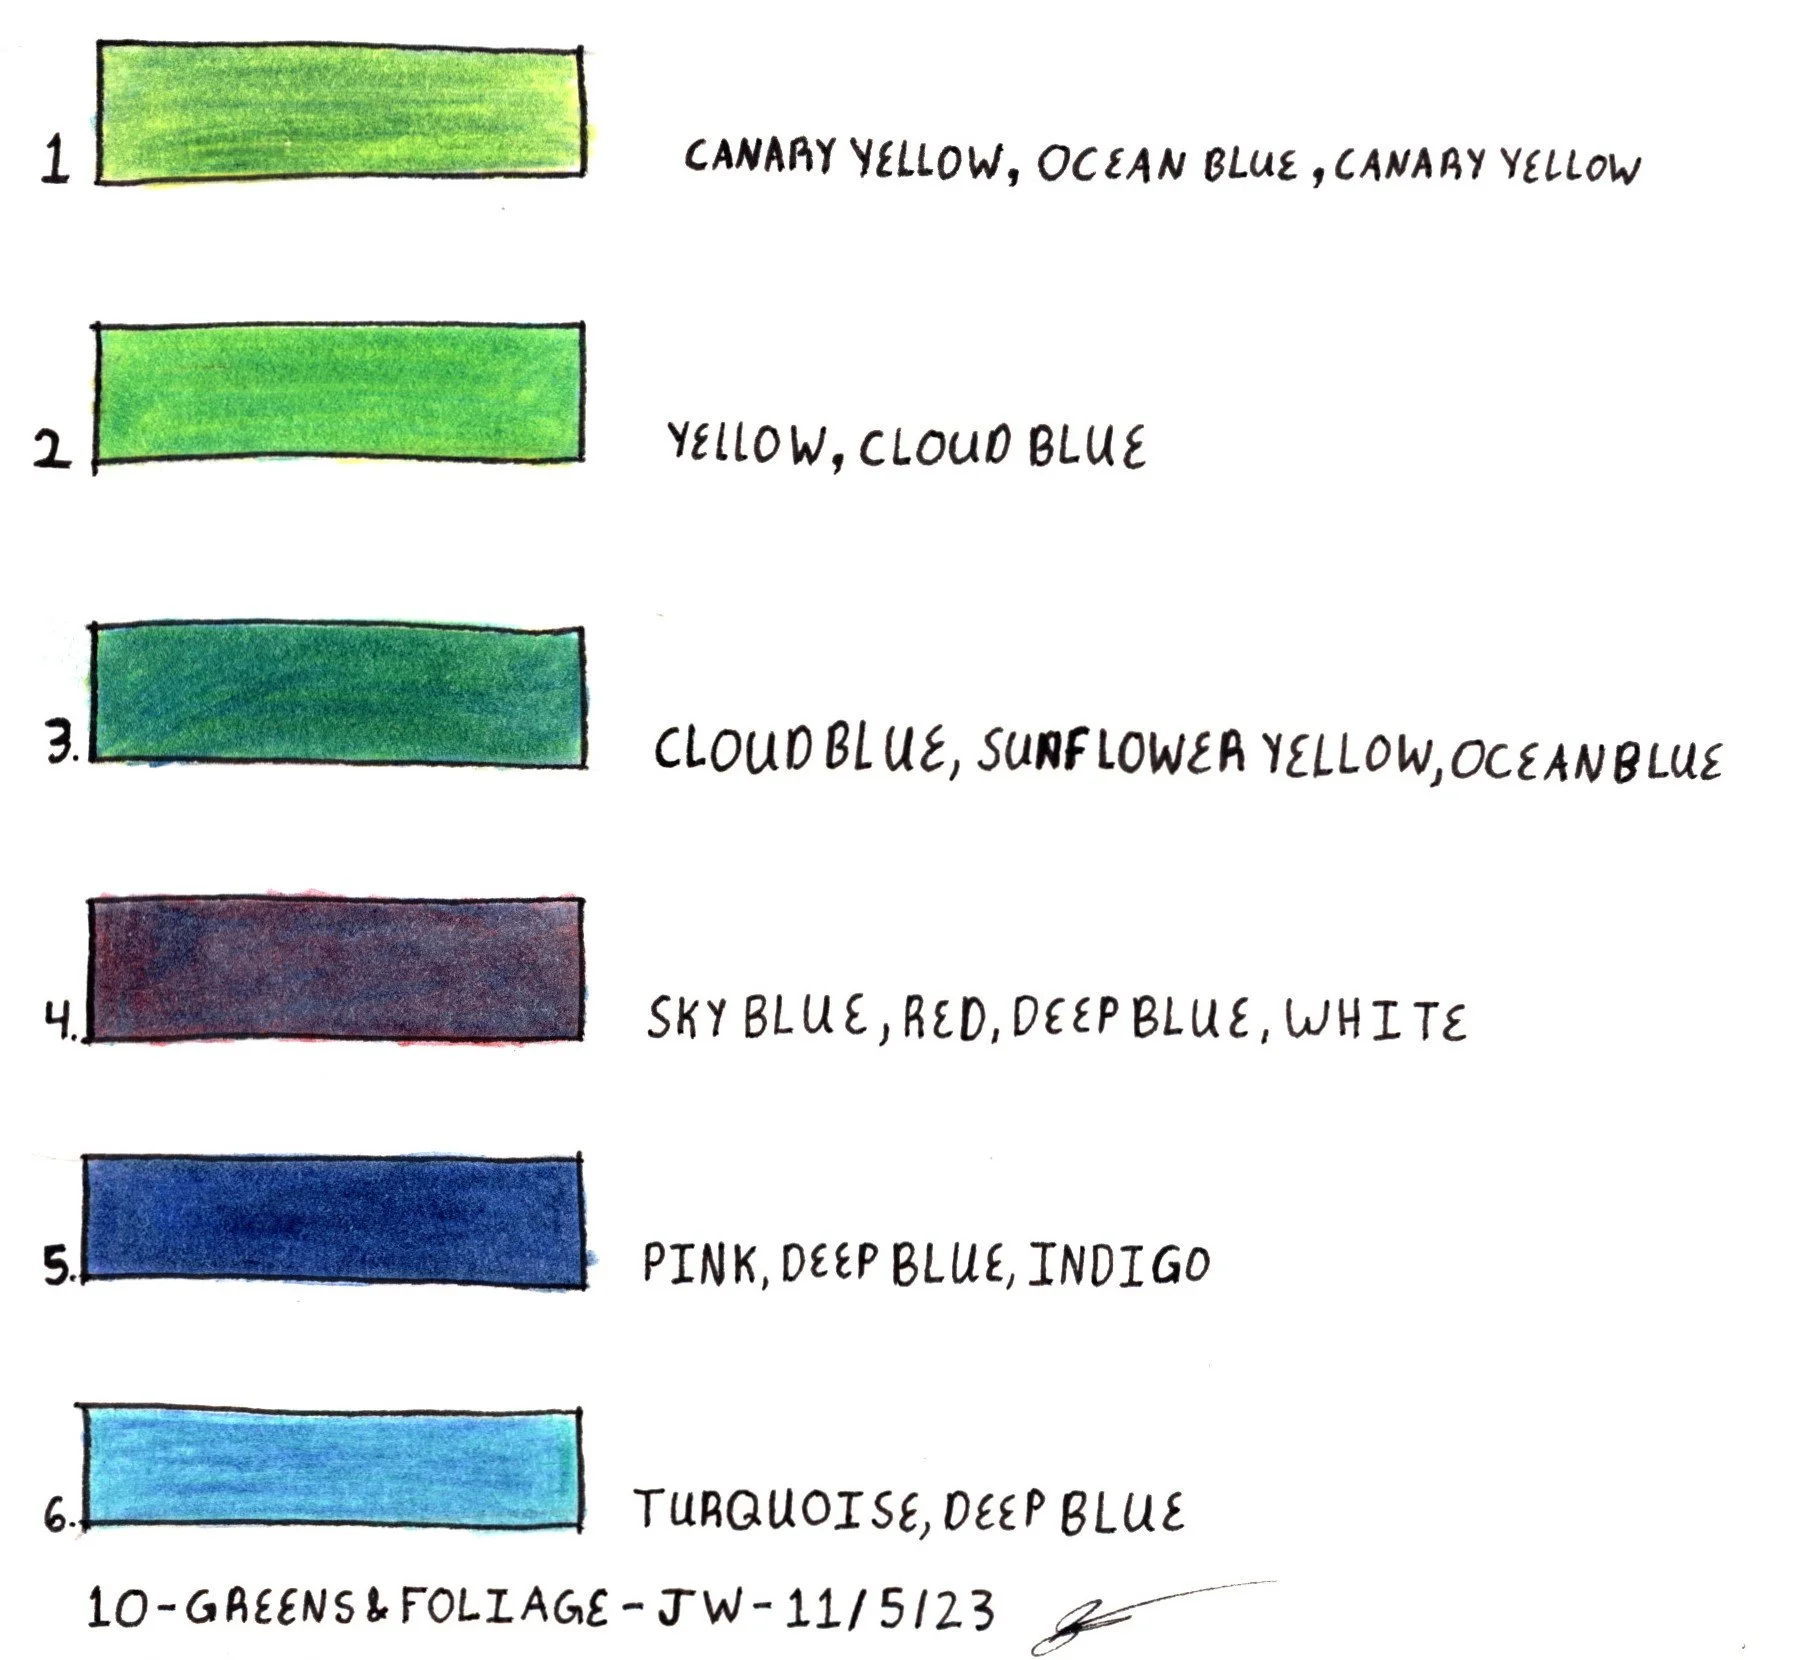 1 CANARY YELLOW, OCEAN BLUE, CANARY YELLOW
2 YELLOW, CLOUD BLUE
3. CLOUD BLUE, SUNFLOWER YELLOW, OCEAN BLUE
4. SKY BLUE, RED, DEEP BLUE, WHITE
5. PINK, DEEP BLUE, INDIGO
6. TURQUOISE, DEEP BLUE
10-GREENS & FOLIAGE-JW-11/5/23